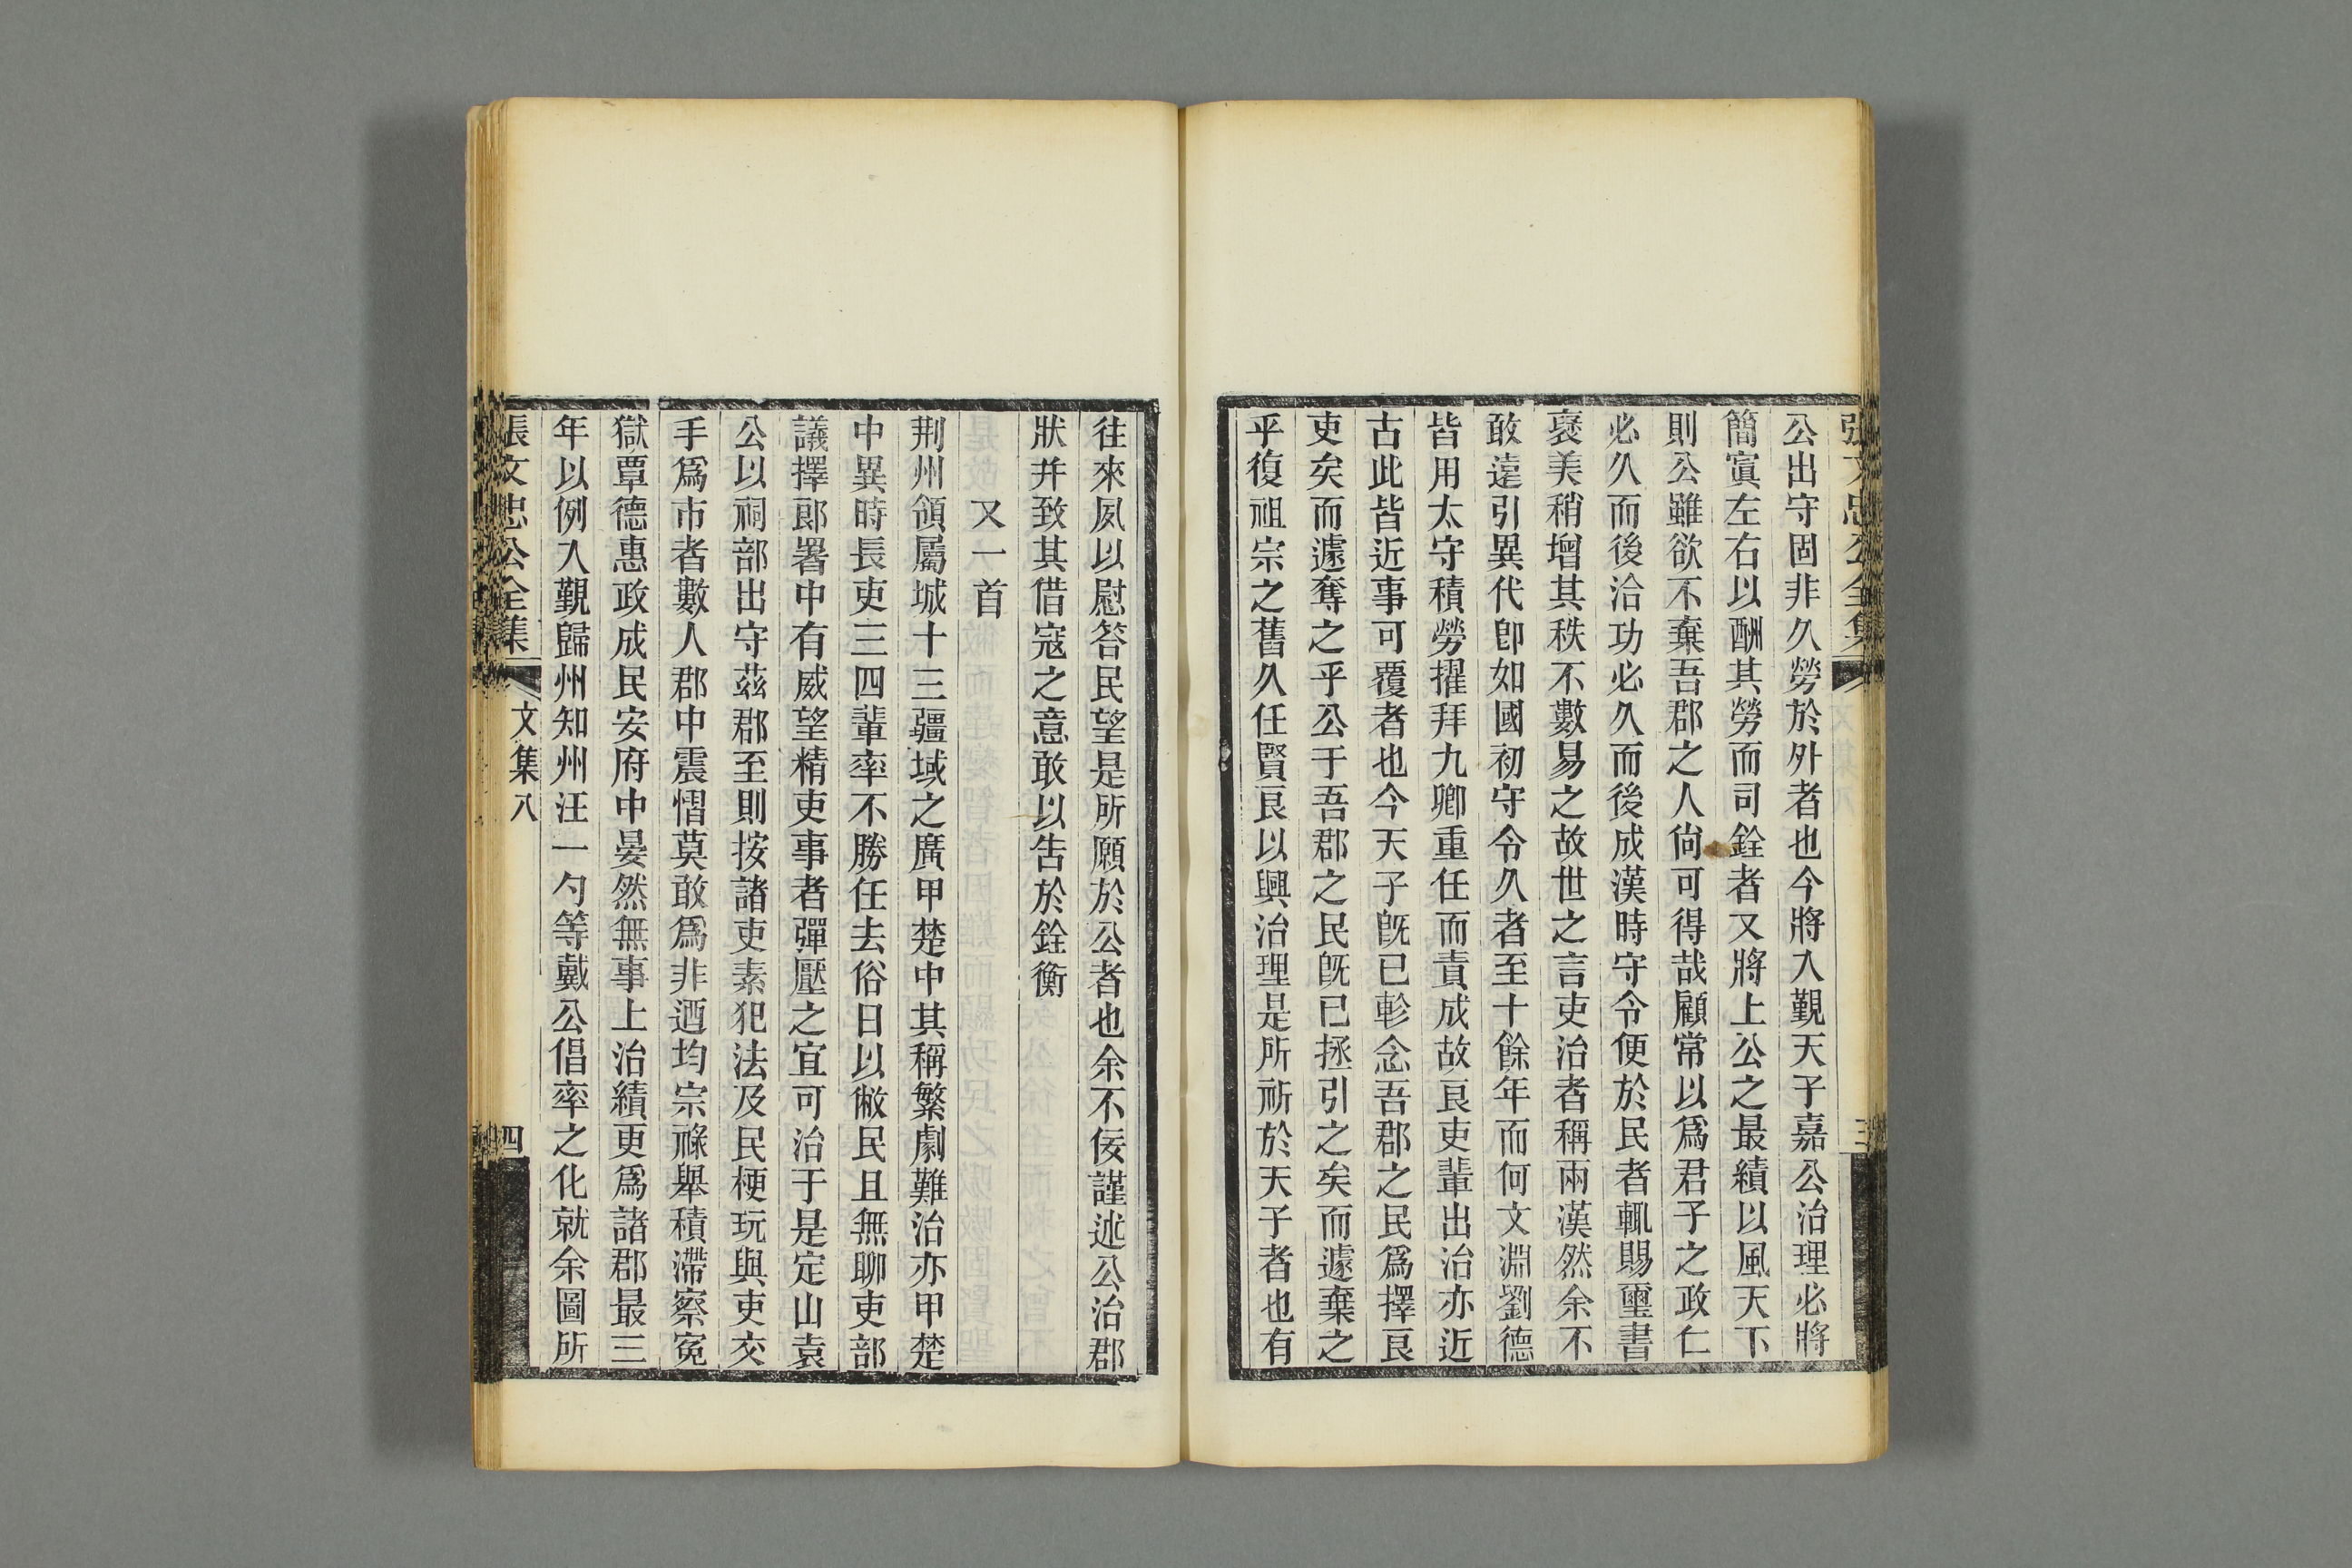 張文忠公全集 三
公出守固非久勞於外者也今將入覲天子嘉公治理必將
簡寘左右以酬其勞而司銓者又將上公之最績以風天下
則公雖欲不棄吾郡之人尙可得哉顧常以爲君子之政仁
必久而後洽功必久而後成漢時守令便於民者輒賜璽書
褒美稍增其秩不數易之故世之言吏治者稱兩漢然余不
敢遠引異代卽如國初守令久者至十餘年而何文淵劉德
皆用太守積勞擢拜九卿重任而責成故良吏輩出治亦近
古此皆近事可覆者也今天子旣已軫念吾郡之民爲擇良
吏矣而遽奪之乎公于吾郡之民旣已拯引之矣而遽棄之
乎復祖宗之舊久任賢良以興治理是所祈於天子者也有
往來夙以慰答民望是所願於公者也余不佞謹述公治郡
狀并致其借寇之意敢以告於銓衡
又一首
荆州領屬城十三疆域之廣甲楚中其稱繁劇難治亦甲楚
中異時長吏三四輩率不勝任去俗日以敝民且無聊吏部
議擇郎署中有威望精吏事者彈壓之宜可治于是定山袁
公以祠部出守茲郡至則按諸吏素犯法及民梗玩與吏交
手爲市者數人郡中震慴莫敢爲非迺均宗祿舉積滯察寃
獄覃德惠政成民安府中晏然無事上治績更爲諸郡最三
年以例入覲歸州知州汪一勺等戴公倡率之化就余圖所
張文忠公全集 文集八 四